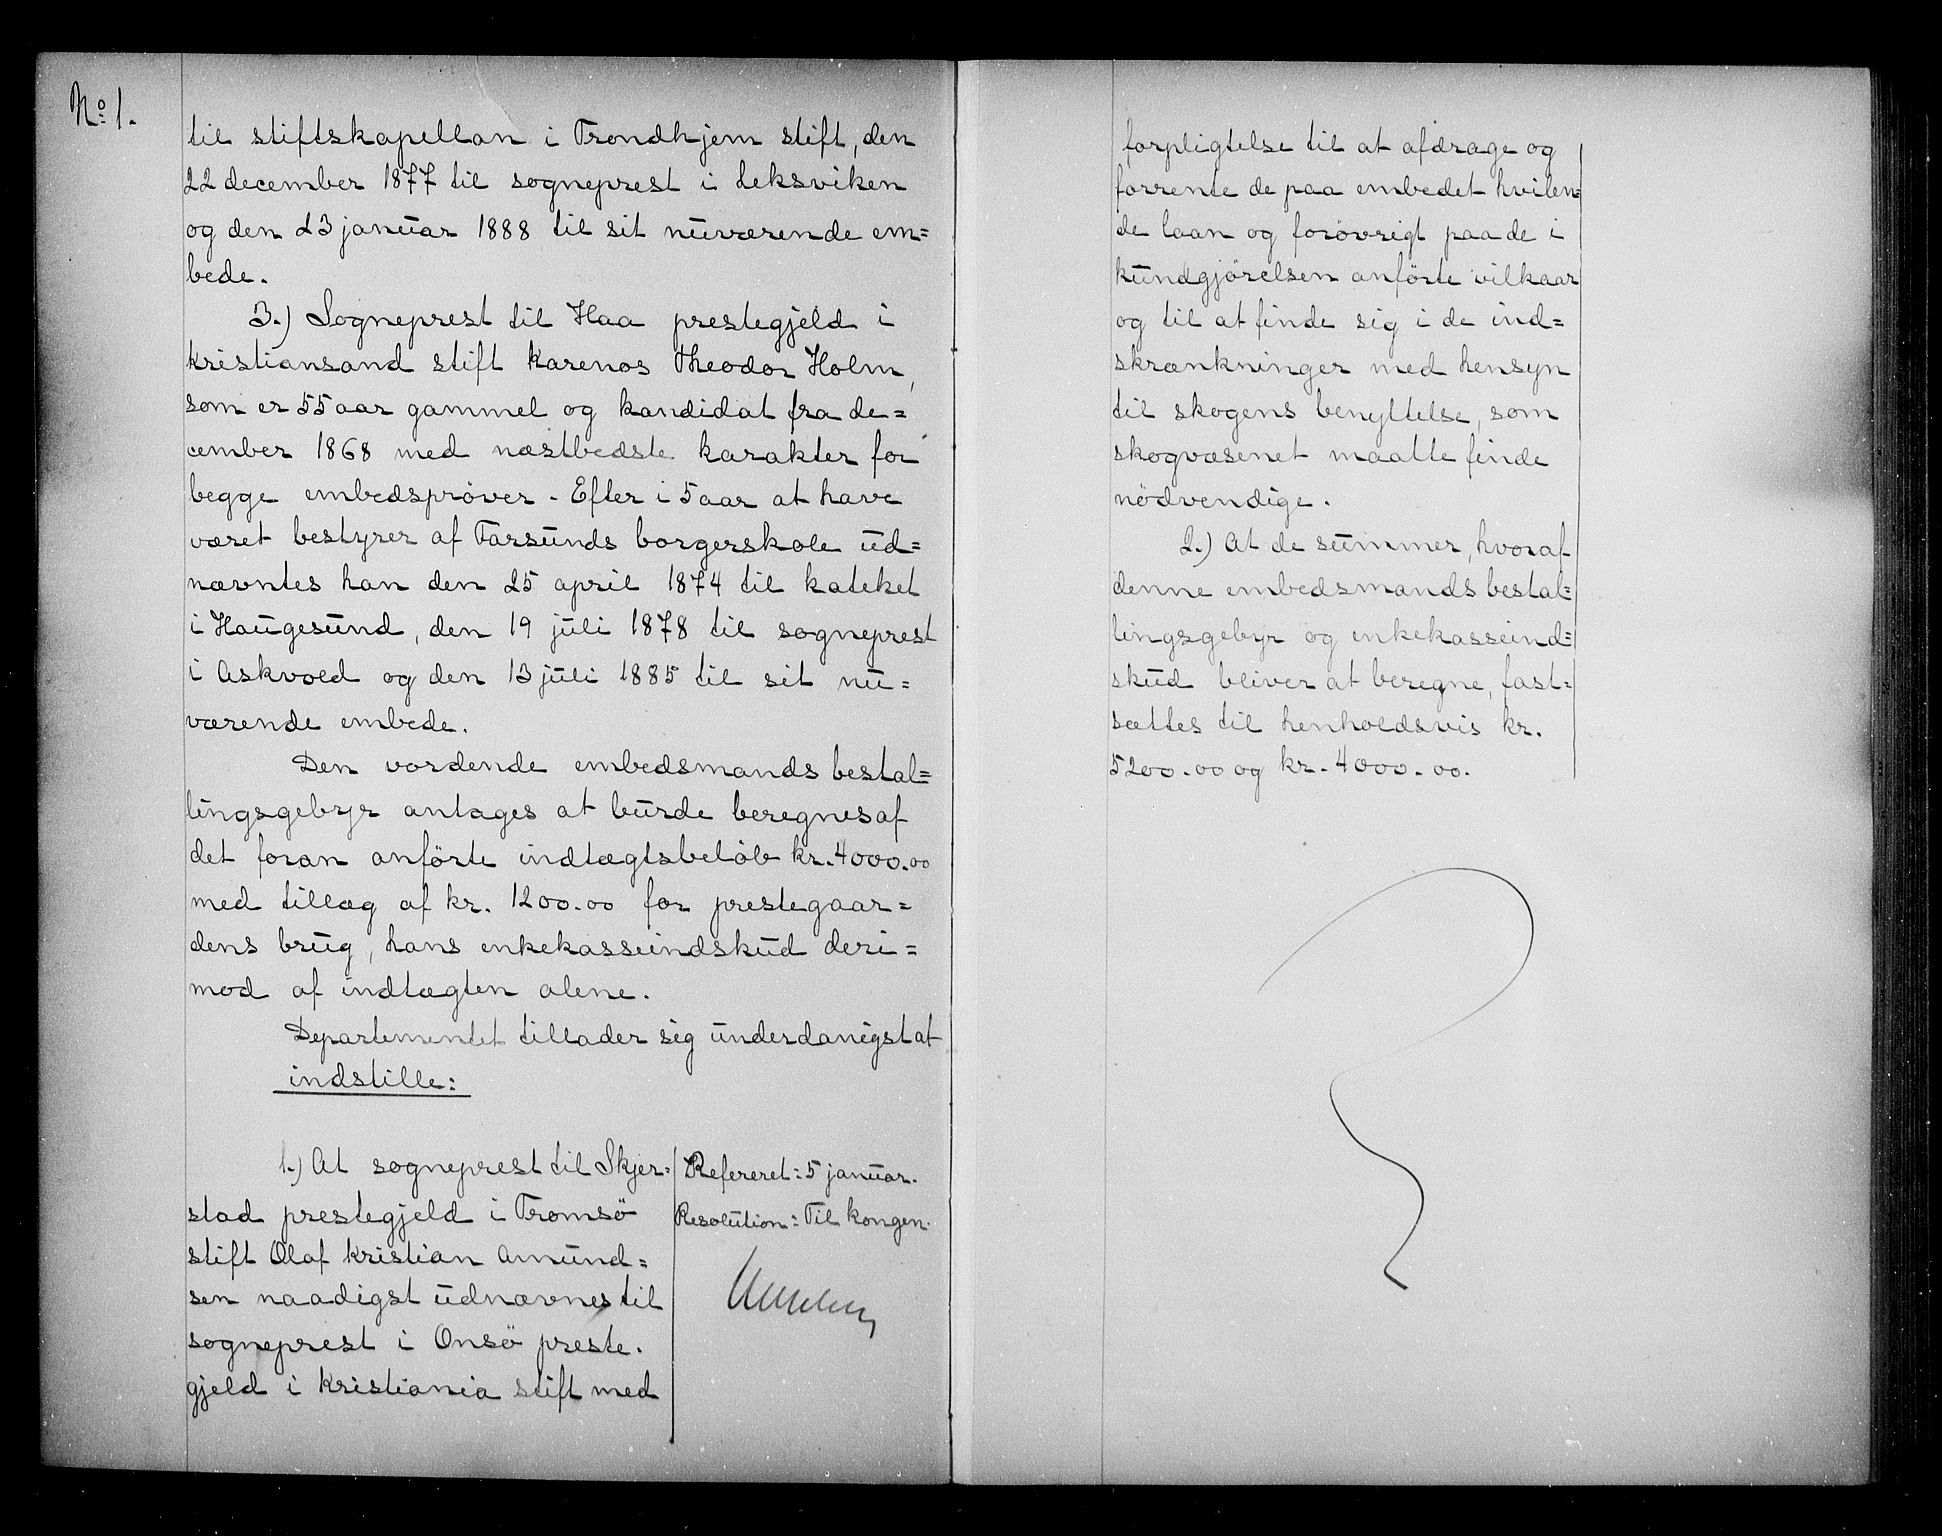 No 1.
til stiftskapellan i Trondhjem stift, den
22 december 1877 til sogneprest i Leksviken
og den 23 januar 1888 til sit nuværende em=
bede.
3.) Sogneprest til Haa prestegjeld i
Kristiansand stift Karenos Theodor Holm,
som er 55 aar gammel og kandidat fra de=
cember 1868 med næstbedste karakter for
begge embedsprøver. Efter i 5 aar at have
været bestyrer af Farsunds borgerskole ud=
nævntes han den 25 april 1874 til kateket
i Haugesund, den 19 juli 1878 til sogneprest
i Askvold og den 13 juli 1885 til sit nu=
værende embede.
Den vordende embedsmands bestal=
lingsgebyr antages at burde beregnes af
det foran anførte indtægtsbeløb kr. 4000.00
med tillæg af kr. 1200.00 for prestegaar=
dens brug, hans enkekasseindskud deri=
mod af indtægten alene.
Departementet tillader sig underdanigst at
indstille:
1.) At sogneprest til Skjer=
stad prestegjeld i Tromsö
stift Olaf Kristian Amund=
sen naadigst udnævnes til
sogneprest i Onsö preste.
gjeld i Kristiania stift med
Refereret: 5 januar.
Resolution: Til kongen.
forpligtelse til at afdrage og
forrente de paa embedet hvilen=
de laan og forøvrigt paa de i
kundgjörelsen anförte vilkaar
og til at finde sig i de ind=
skrænkninger med hensyn
til skogens benyttelse, som
skogvæsenet maatte finde
nödvendige.
2.) At de summer, hvoraf
denne embedsmands bestal=
lingsgebyr og enkekasseind=
skud bliver at beregne, fast=
sættes til henholdsvis kr.
5200.00 og kr. 4000.00.